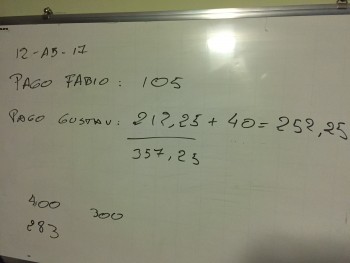 12-AB-17
PAGO FABIO: 105
PAGO GUSTAV: 212,25 + 40 = 252,25
357,25
400
300
283